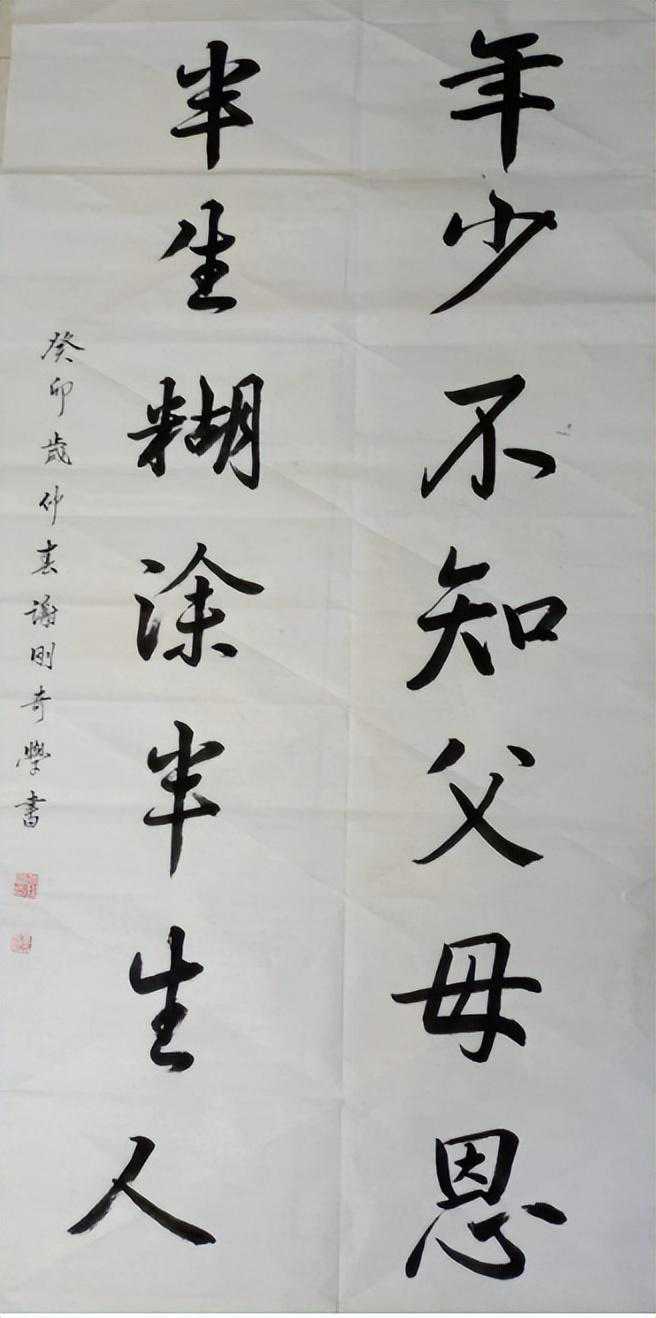 年少不知父母恩
半生糊涂半生人
癸卯歲仲春謝明奇學書